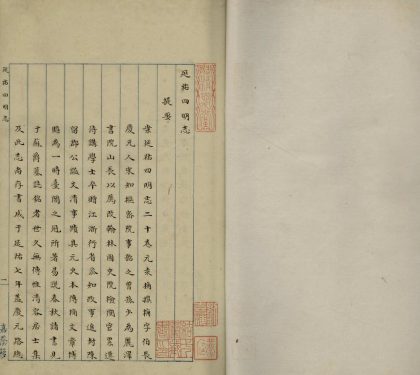 延祐四明志
提要
案延祐四明志二十卷元袁桷撰桷字伯長
慶元人宋知樞密院事韶之曾孫少為麗澤
書院山長以薦改翰林國史院檢閱官累遷
侍講學士卒贈江浙行省參知政事追封陳
留郡公諡文清事蹟具元史本傳桷文章博
贍為一時臺閣之冠所著易說春秋說諸書見
于蘇爵墓誌銘者世久無傳惟清容居士集
及此志尚存書成于延祐七年蓋慶元路總
延祐四明志
一